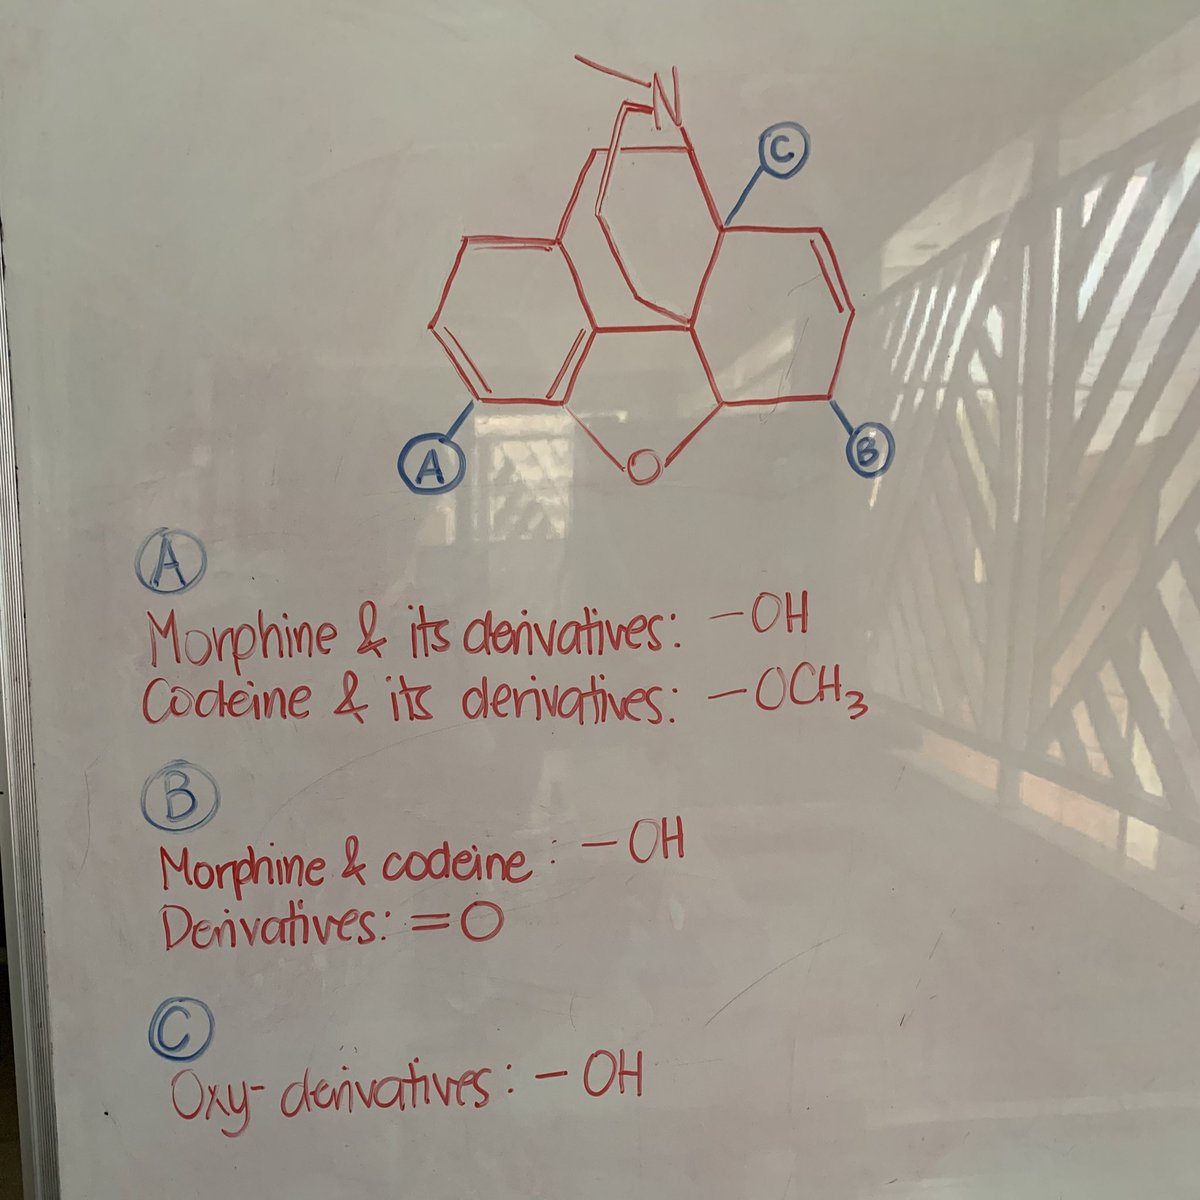 N
C
A
O
B
A
Morphine & its derivatives: -OH
Codeine & its derivatives: -OCH3
B
Morphine & codeine: -OH
Derivatives: =O
C
Oxy-derivatives: -OH